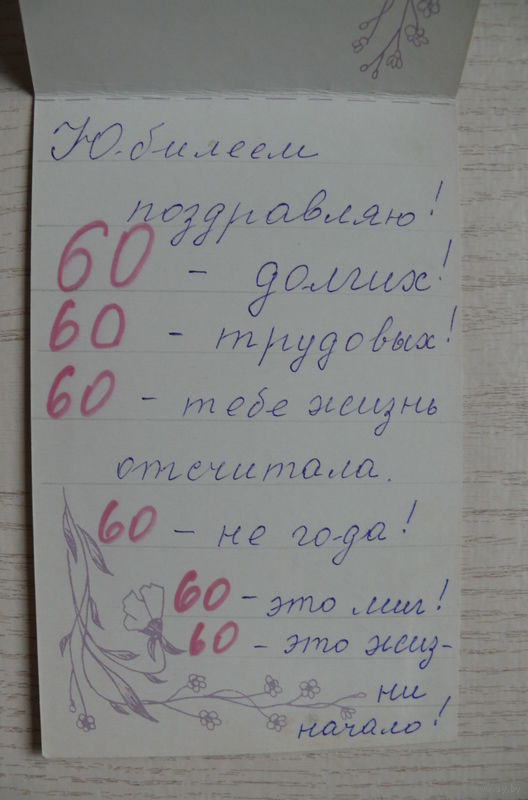 Юбилеем
поздравляю!
60 - долгих!
60 - трудовых!
60 - тебе жизнь
отсчитала.
60 - не года!
60 - это миг!
60 - это жиз-
ни
начало!